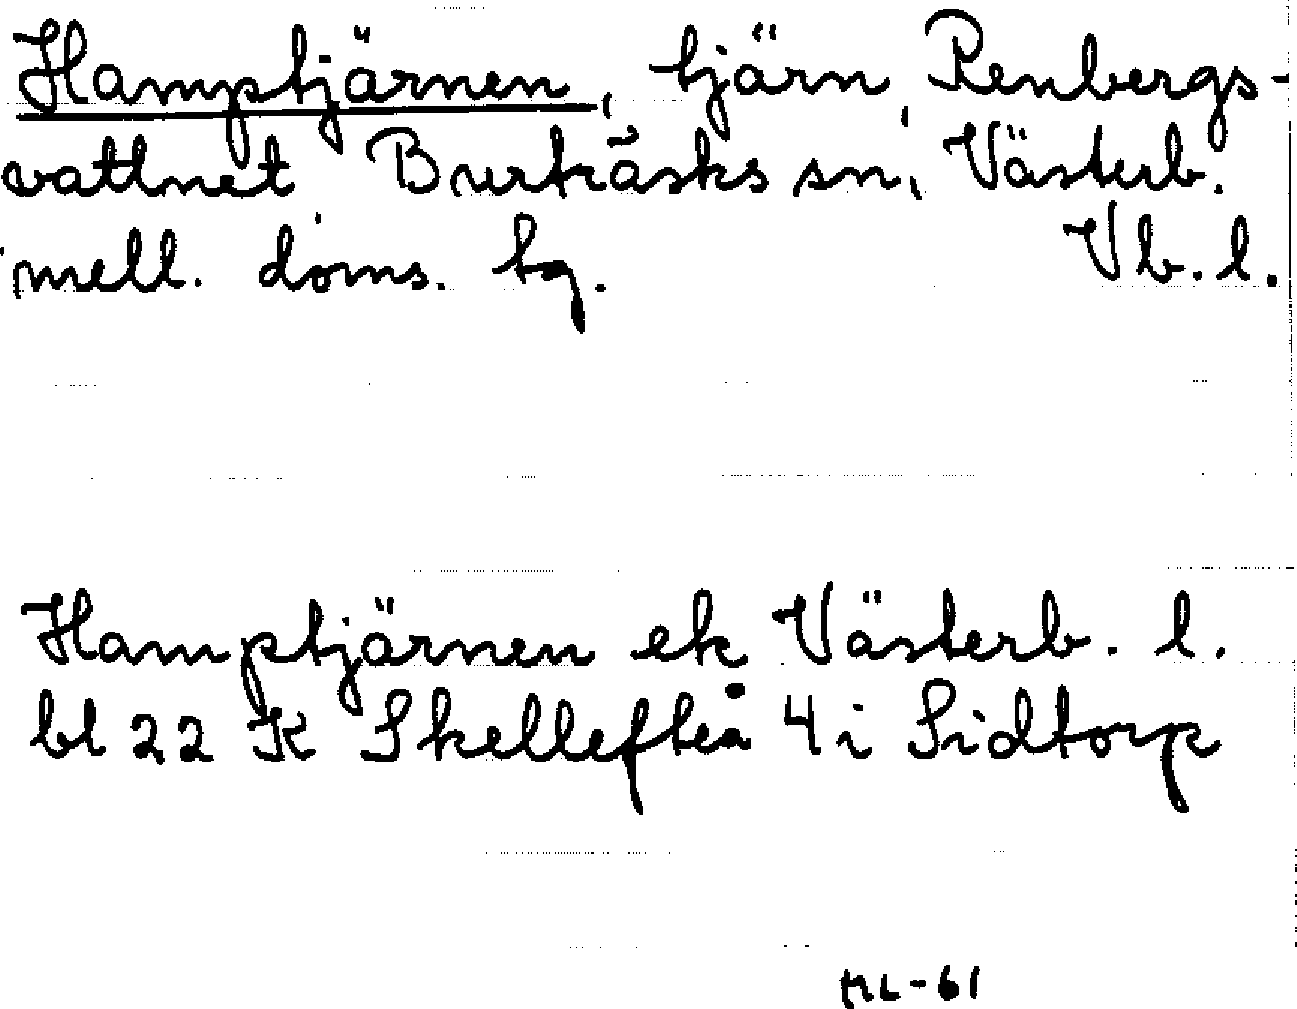 Hamptjärnen, tjärn, Renbergs-
vattnet Burträsks sn, Västerb.
mell. doms. tg. Vb. l.
Hamptjärnen ek Västerb. l.
bl 22 K Skellefteå 4 i Sidtorp
ML-61